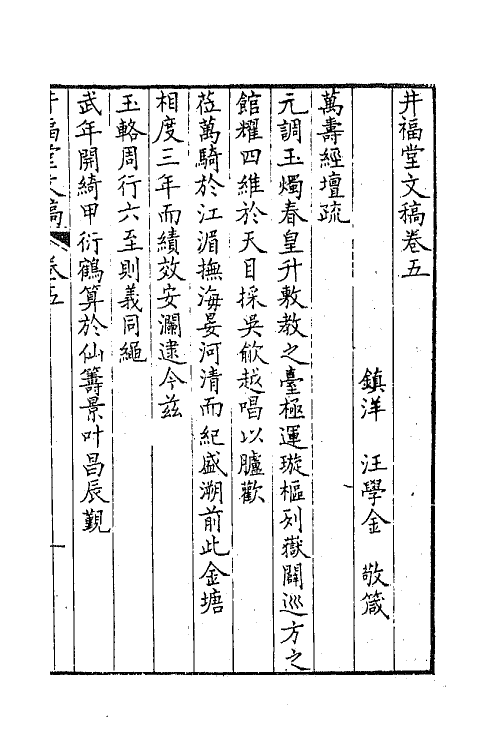 井福堂文稿卷五
鎮洋　汪學金　敬箴
萬壽經壇疏
元調玉燭春皇升敷教之臺極運璇樞列嶽闢巡方之
館耀四維於天目採吳歈越唱以臚歡
莅萬騎於江湄撫海晏河清而紀盛溯前此金塘
相度三年而績效安瀾逮今兹
玉輅周行六至則義同繩
武年開綺甲衍鶴算於仙籌景叶昌辰覲
井福堂文稿　卷五